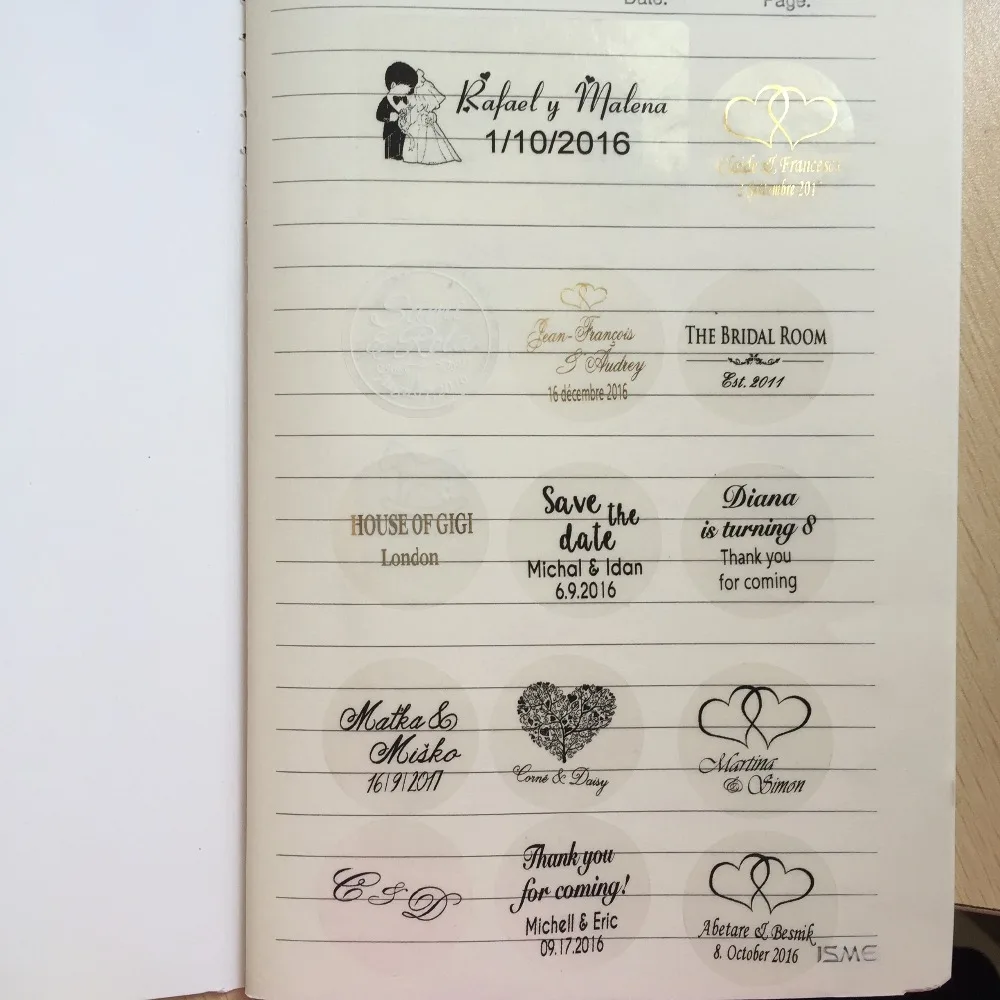 Date:
Page:
Rafael y Malena
1/10/2016
& Francesco
Jean-François
& Audrey
16 décembre 2016
THE BRIDAL ROOM
Est. 2011
HOUSE OF GIGI
London
Save the
date
Michal & Idan
6.9.2016
Diana
is turning 8
Thank you
for coming
Matka &
Miško
16|9|2017
Corné & Daisy
Martina
& Simon
C & D
Thank you
for coming!
Michell & Eric
09.17.2016
Abetare & Besnik
8. October 2016
ISME